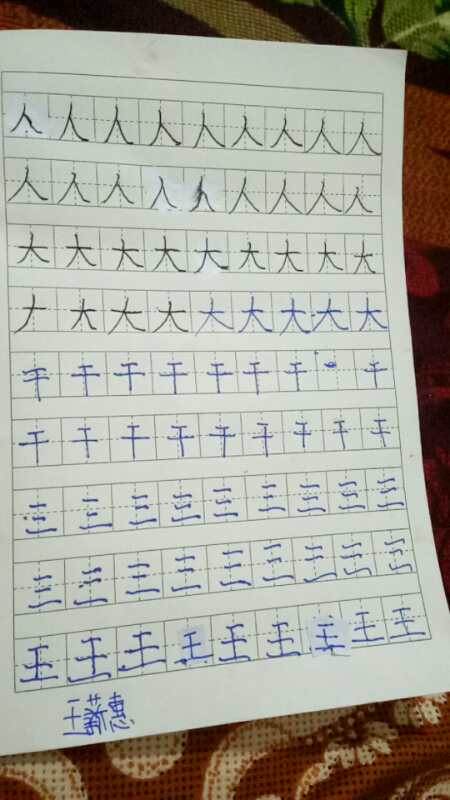 人人人人人人人人人
人人人人人人人人人
大大大大大大大大大
大大大大大大大大大
干干干干干干干干
干干干干干干干干干
三三三三三三三三三
三三三三三三三三三
王王王王王王王王王